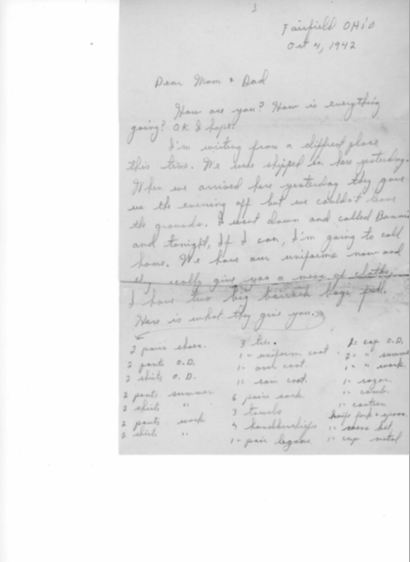 Fairfield OHiO
Oct 4, 1942
Dear Mom + Dad
How are you? How is everything
going? OK I hope?
I'm writing from a different place
this time. We were shipped in here yesterday.
When we arrived here yesterday they gave
us the evening off but we couldn't leave
the grounds. I went down and called
and tonight, If I can, I'm going to call
home. We have our uniforms now and
they really give you a mess of clothes.
I have two big barrack bags full.
Here is what they give you.
2 pairs shoes. 3 ties. 1- cap O.D.
2 pants O.D. 1- uniform coat 2- " summer
2 shirts O.D. 1- over coat 1- " work
1- rain coat 1- razor
2 pants summer 6 pairs sock 1- comb
2 shirts " 3 towels 1- canteen
2 pants work 4 handkerchiefs knife fork + spoon
2 shirts " 1- pair leggins 1- mess kit
1- cap metal